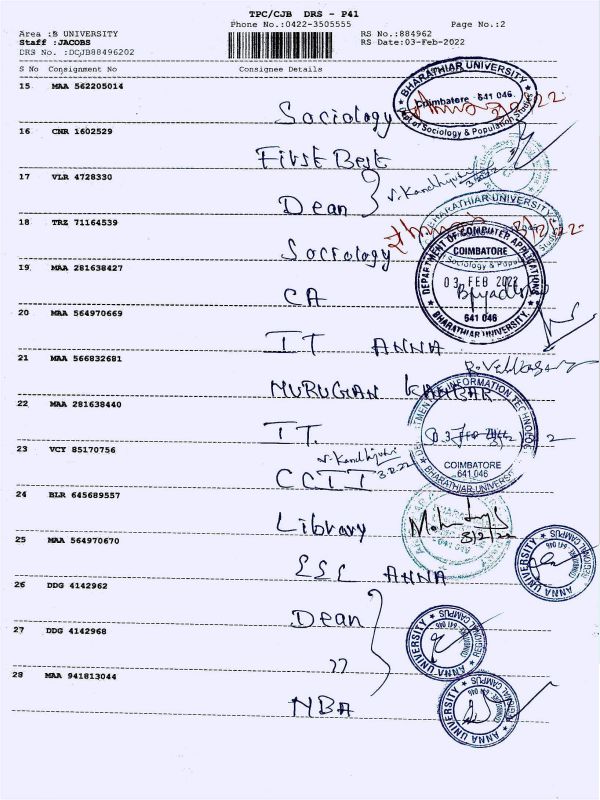 TPC/CJB DRS - P41
Phone No.:0422-3505555 Page No.:2
Area :B UNIVERSITY RS No.:884962
Staff :JACOBS RS Date:03-Feb-2022
DRS No. :DCJB88496202
S No Consignment No Consignee Details
15 MAA 562205014
Sociology
BHARATHIAR UNIVERSITY
Coimbatore - 641 046.
Dept of Sociology & Population Studies
16 CNR 1602529
First Best
17 VLR 4728330
Dean
3.2.22
18 TRZ 71164539
Sociology
BHARATHIAR UNIVERSITY
3/2/22
19 MAA 281638427
CA
DEPARTMENT OF COMPUTER APPLICATIONS
COIMBATORE
03 FEB 2022
641 046
BHARATHIAR UNIVERSITY
20 MAA 564970669
IT ANNA
21 MAA 566832681
MURUGAN
22 MAA 281638440
IT.
DEPARTMENT OF INFORMATION TECHNOLOGY
COIMBATORE
641 046
BHARATHIAR UNIVERSITY
23 VCY 85170756
CCII
3.2.22
24 BLR 645689557
Library
3/2/22
25 MAA 564970670
ESE ANNA
ANNA UNIVERSITY
26 DDG 4142962
Dean
27 DDG 4142968
”
ANNA UNIVERSITY
28 MAA 941813044
NBA
ANNA UNIVERSITY